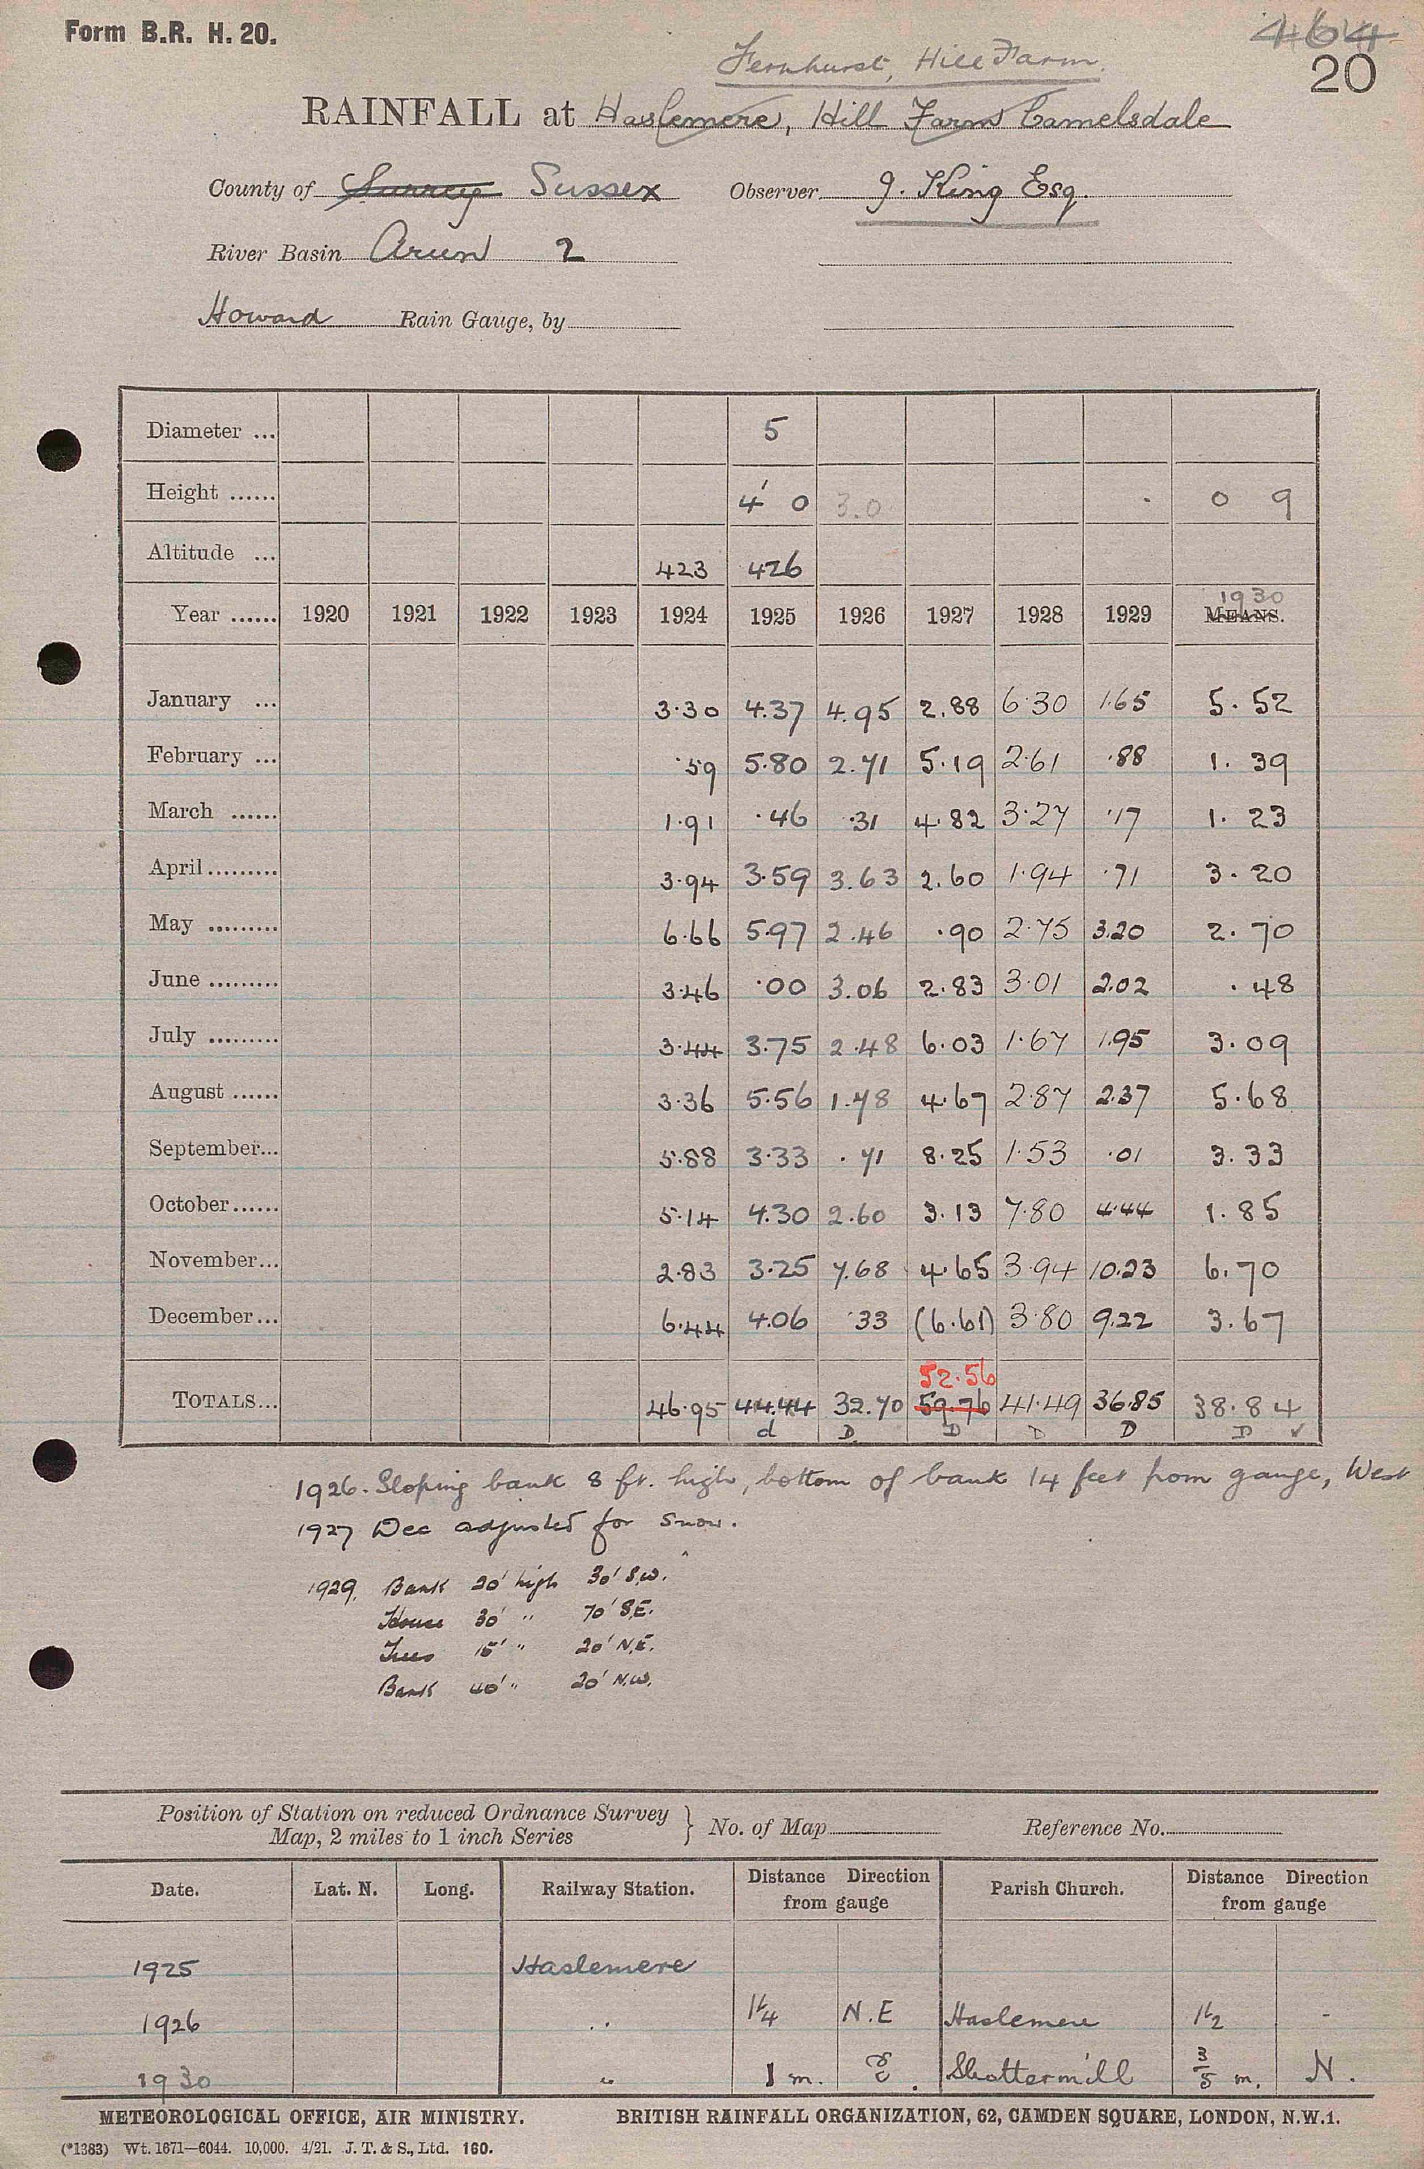 Form B.R. H. 20.
464
20
Fernhurst, Hill Farm.
RAINFALL at Haslemere, Hill Farm Camelsdale
County of Surrey Sussex Observer J. King Esq.
River Basin Arun 2
Howard Rain Gauge, by
Diameter ... 5
Height ...... 4' 0 3.0 0 9
Altitude ... 423 426
1930
Year ...... 1920 1921 1922 1923 1924 1925 1926 1927 1928 1929 MEANS.
January ... 3.30 4.37 4.95 2.88 6.30 1.65 5.52
February ... .59 5.80 2.71 5.19 2.61 .88 1.39
March ...... 1.91 .46 .31 4.82 3.27 .17 1.23
April ......... 3.94 3.59 3.63 2.60 1.94 .71 3.20
May ......... 6.66 5.97 2.46 .90 2.75 3.20 2.70
June ......... 3.46 .00 3.06 2.83 3.01 2.02 .48
July ......... 3.44 3.75 2.48 6.03 1.67 1.95 3.09
August ...... 3.36 5.56 1.78 4.67 2.87 2.37 5.68
September... 5.88 3.33 .71 8.25 1.53 .01 3.33
October ...... 5.14 4.30 2.60 3.13 7.80 4.44 1.85
November... 2.83 3.25 7.68 4.65 3.94 10.23 6.70
December ... 6.44 4.06 .33 (6.61) 3.80 9.22 3.67
52.56
TOTALS... 46.95 44.44 32.70 59.76 41.49 36.85 38.84
d D D D D D ✓
1926. Sloping bank 8 ft. high, bottom of bank 14 feet from gauge, West
1927 Dec adjusted for snow.
1929. Bank 20' high 30' S.W.
House 30' " 70' S.E.
Trees 15' " 20' N.E.
Bank 40' " 20' N.W.
Position of Station on reduced Ordnance Survey
Map, 2 miles to 1 inch Series } No. of Map Reference No.
Date. Lat. N. Long. Railway Station. Distance Direction from gauge Parish Church. Distance Direction from gauge
1925 Haslemere
1926 " 1¼ N.E Haslemere 1½ -
1930 " 1 m. E. Shottermill 3/5 m. N.
METEOROLOGICAL OFFICE, AIR MINISTRY. BRITISH RAINFALL ORGANIZATION, 62, CAMDEN SQUARE, LONDON, N.W.1.
(*1383) Wt. 1671—6044. 10,000. 4/21. J. T. & S., Ltd. 160.